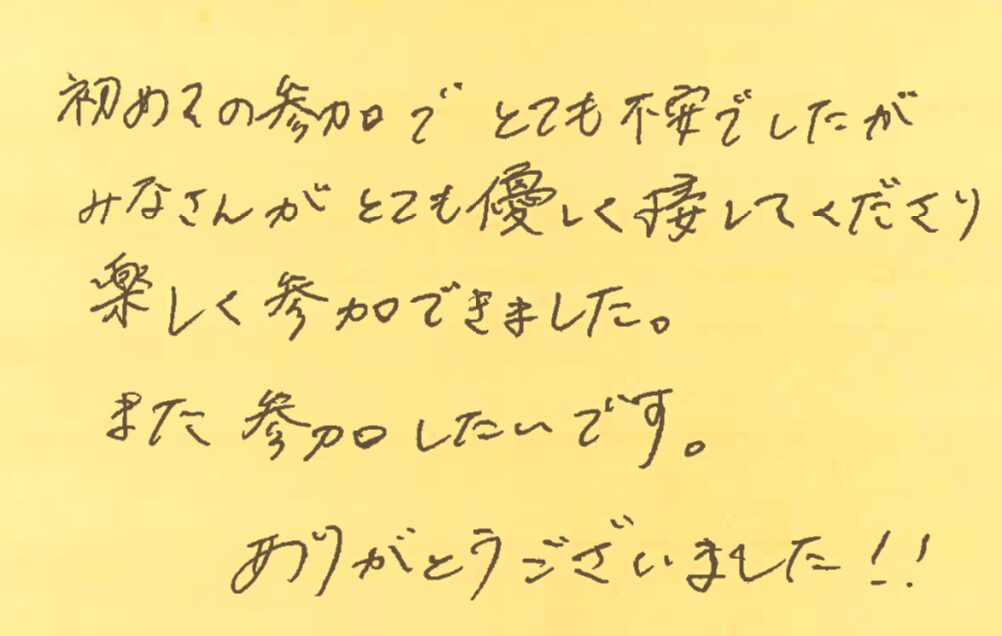 初めての参加で とても不安でしたが
みなさんが とても優しく接してくださり
楽しく参加できました。
また 参加したいです。
ありがとうございました!!